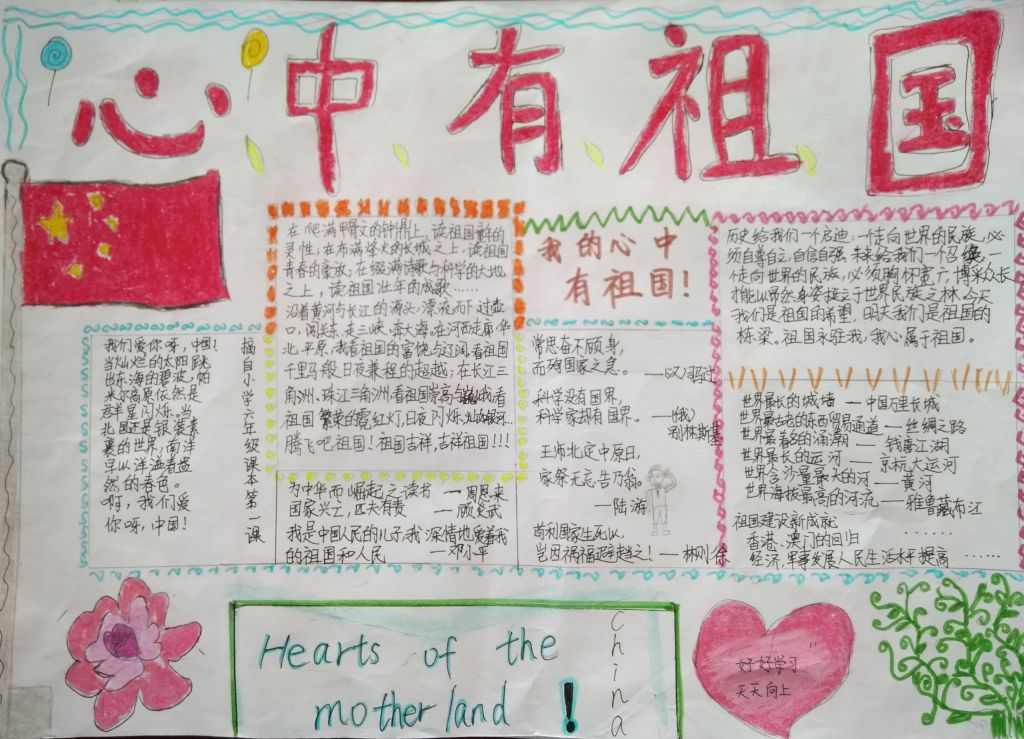 心中有祖国
我们爱你呀，中国！
当灿烂的太阳跳
出东海的碧波，帕
米尔高原依然是
群星闪烁。当
北国还是银装素
裹的世界，南洋
早以洋溢着盎
然的春色。
啊，我们爱
你呀，中国！
摘自小学六年级课本第一课
在爬满甲骨文的钟鼎上，读祖国童年的
灵性；在布满烽火的长城之上，读祖国
青春的豪放；在缀满诗歌与科学的大地
之上，读祖国壮年的成歌……
沿着黄河与长江的源头，漂流而下过壶
口，闯关东，走三峡，奔大海。在河西走廊，华
北平原，我看祖国的富饶与辽阔，看祖国
千里马般日夜兼程的超越；在长江三
角洲、珠江三角洲，看祖国崇高与巍峨，看
祖国繁荣的霓红灯，日夜闪烁，灿如银河。
腾飞吧祖国！祖国吉祥，吉祥祖国！！！
为中华而崛起之读书 —周恩来
国家兴亡，匹夫有责 —顾炎武
我是中国人民的儿子，我深情地爱着我
的祖国和人民 —邓小平
我的心中
有祖国！
常思奋不顾身，
而殉国家之急。 —(汉)司马迁
科学没有国界，
科学家却有国界。 —(俄)
别林斯基
王师北定中原日，
家祭无忘告乃翁。
—陆游
苟利国家生死以，
岂因祸福避趋之！—林则徐
历史给我们一个启迪：一走向世界的民族，必
须自尊自立，自信自强。未来给我们一个召唤：一
走向世界的民族，必须胸怀宽广，博采众长
才能以昂然身姿挺立于世界民族之林。今天
我们是祖国的希望，明天我们是祖国的
栋梁。祖国永驻我，我心属于祖国。
世界最长的城墙 — 中国万里长城
世界最古老的东西贸易通道 — 丝绸之路
世界最著名的涌潮 — 钱唐江湖
世界最长的运河 — 京杭大运河
世界含沙量最大的河 — 黄河
世界海拔最高的河流 — 雅鲁藏布江
祖国建设新成就
香港、澳门的回归 ……
经济，军事发展人民生活水平提高 ……
Hearts of the
motherland！
China
好好学习
天天向上